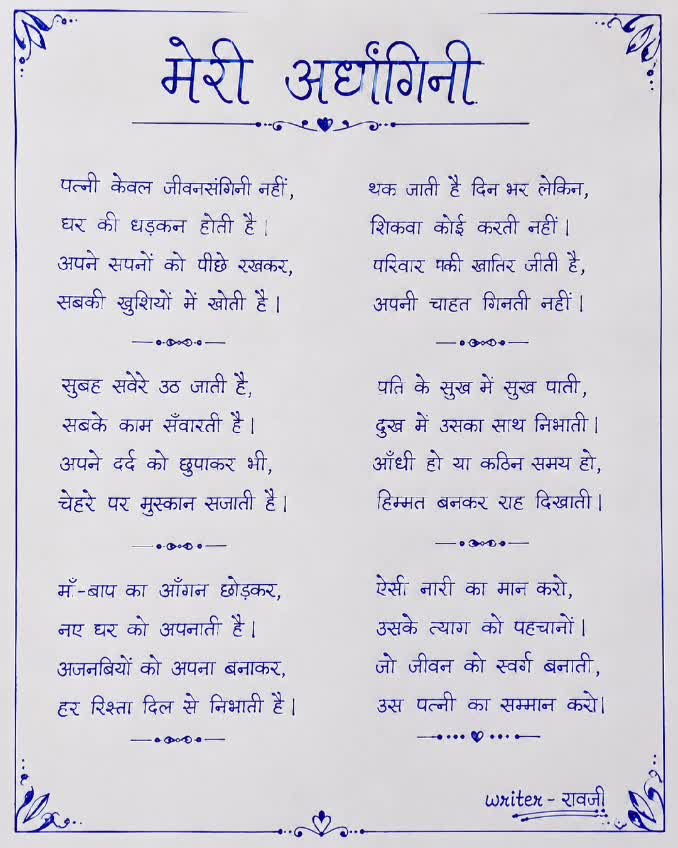 मेरी अर्धांगिनी
पत्नी केवल जीवनसंगिनी नहीं,
घर की धड़कन होती है।
अपने सपनों को पीछे रखकर,
सबकी खुशियों में खोती है।
सुबह सवेरे उठ जाती है,
सबके काम सँवारती है।
अपने दर्द को छुपाकर भी,
चेहरे पर मुस्कान सजाती है।
माँ-बाप का आँगन छोड़कर,
नए घर को अपनाती है।
अजनबियों को अपना बनाकर,
हर रिश्ता दिल से निभाती है।
थक जाती है दिन भर लेकिन,
शिकवा कोई करती नहीं।
परिवार पकी खातिर जीती है,
अपनी चाहत गिनती नहीं।
पति के सुख में सुख पाती,
दुख में उसका साथ निभाती।
आँधी हो या कठिन समय हो,
हिम्मत बनकर राह दिखाती।
ऐसी नारी का मान करो,
उसके त्याग को पहचानों।
जो जीवन को स्वर्ग बनाती,
उस पत्नी का सम्मान करो।
writer - रावजी